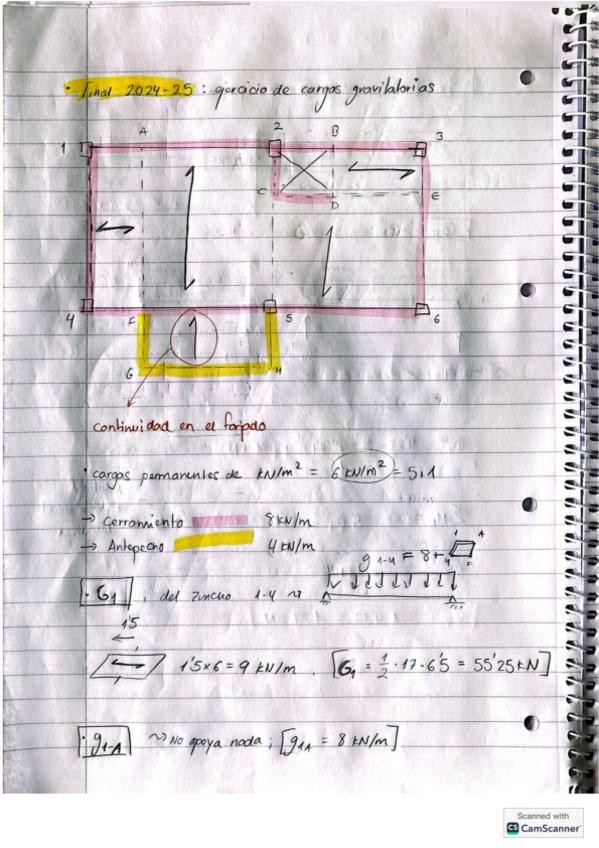 · Final 2024-25 : ejercicio de cargas gravitatorias
A 2 B
1 3
C D E
4 F 5 6
G H
continuidad en el forjado
· cargas permanentes de KN/m² = 6 KN/m² = 5+1
→ Cerramiento 8 KN/m
→ Antepecho 4 KN/m
g 1-4 = 8 + 1 A 4 F
· G1 , del zuncho 1-4 ~
1'5
1'5 x 6 = 9 KN/m. [G1 = 1/2 · 17 · 6'5 = 55'25 KN]
· g1-A ~> No apoya nada ; [g1A = 8 KN/m]
Scanned with
CS CamScanner